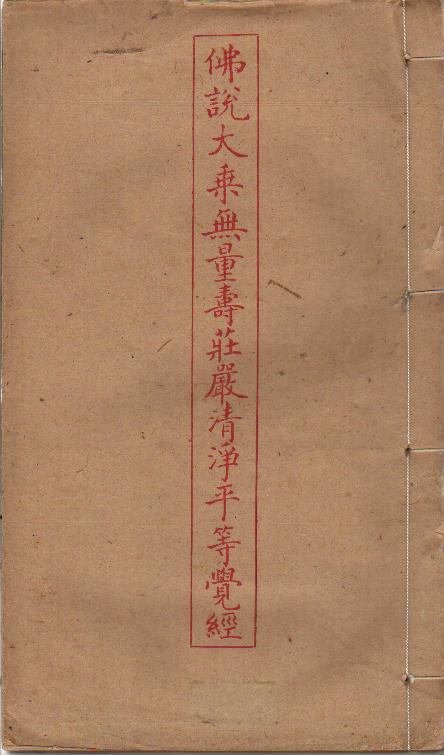 佛說大乗無量壽莊嚴清淨平等覺經